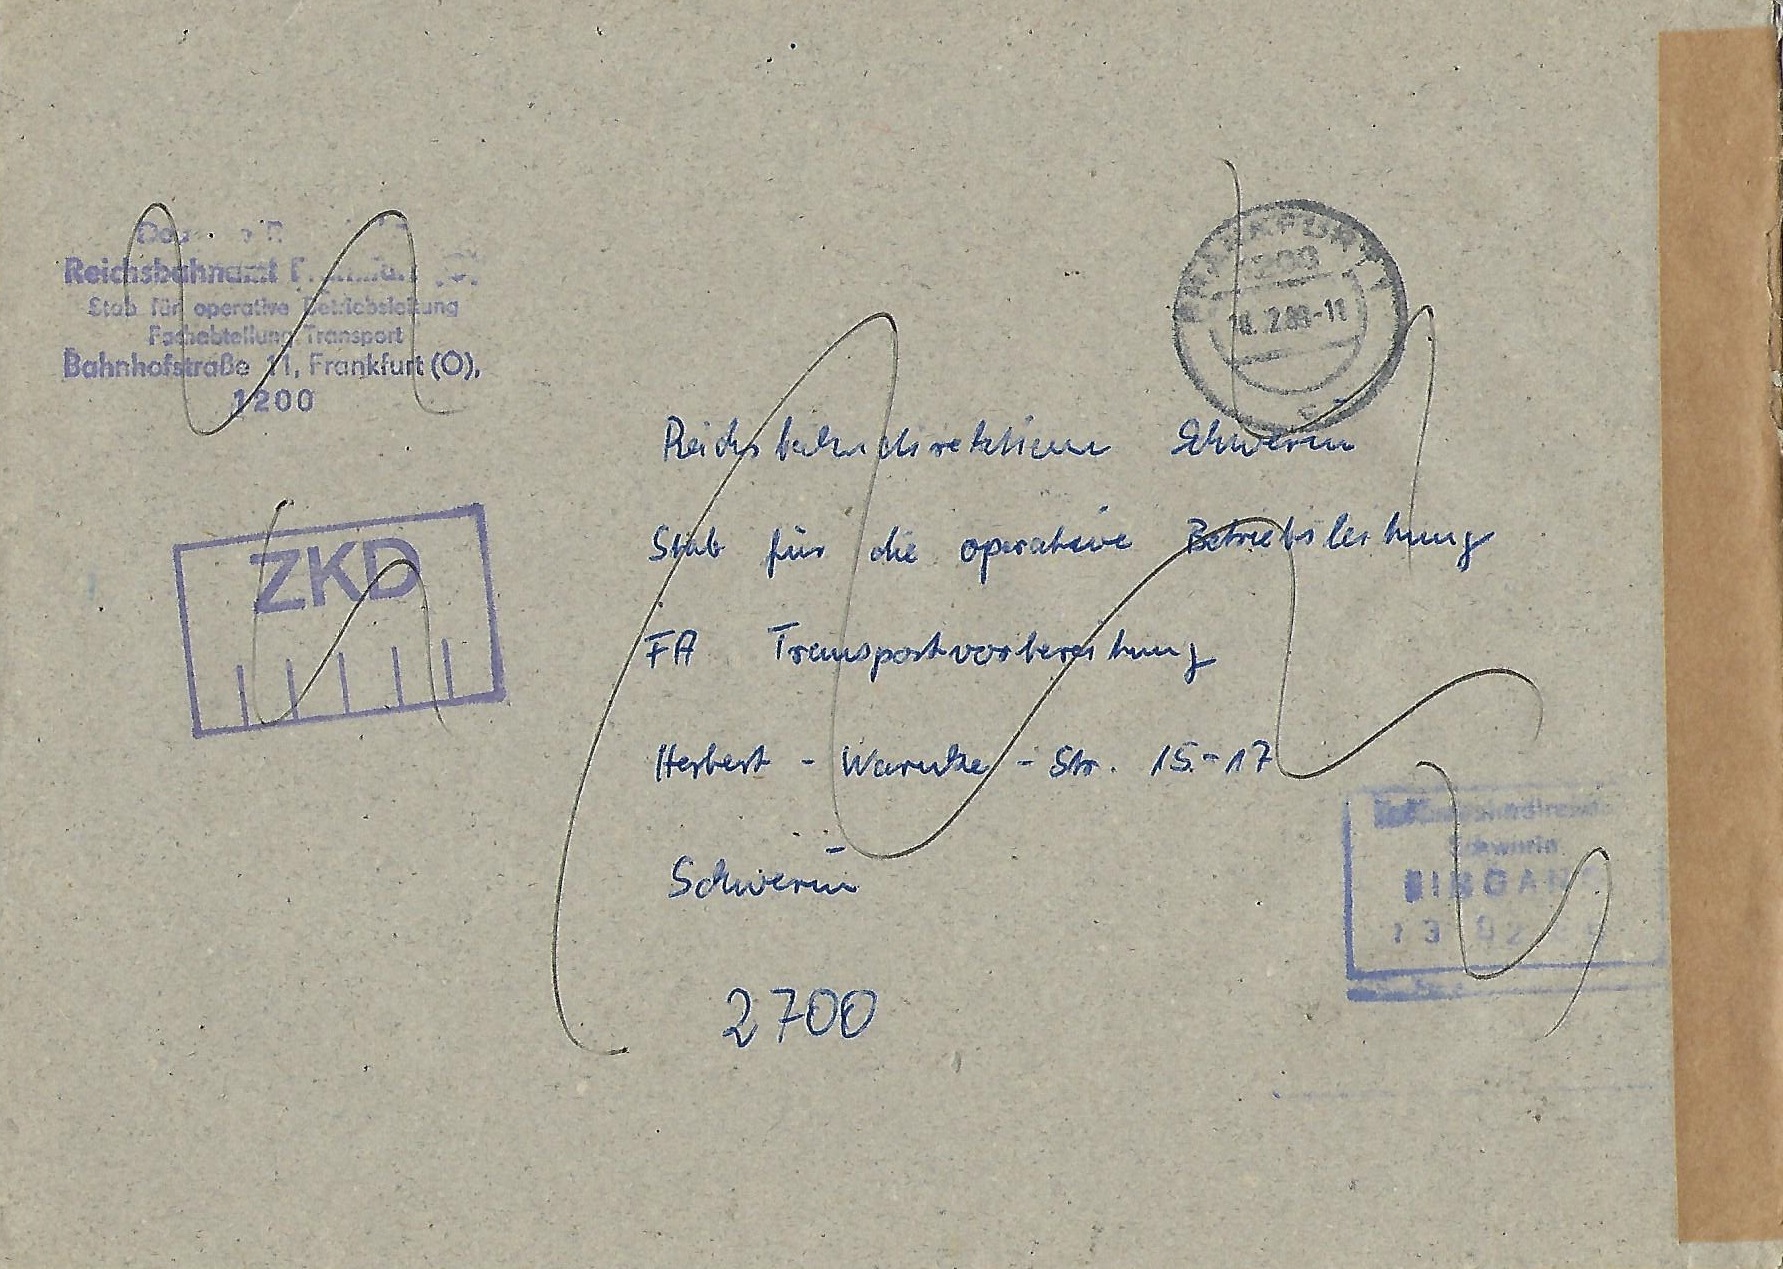 Reichsbahnamt Frankfurt (O)
Stab für operative Betriebsleitung
Fachabteilung Transport
Bahnhofstraße 11, Frankfurt (O),
1200
FRANKFURT
1200
ZKD
Reichsbahndirektion Schwerin
Stab für die operative Betriebsleitung
FA Transportvorbereitung
Herbert - Warnke - Str. 15-17
Schwerin
2700
Schwerin
EINGANG